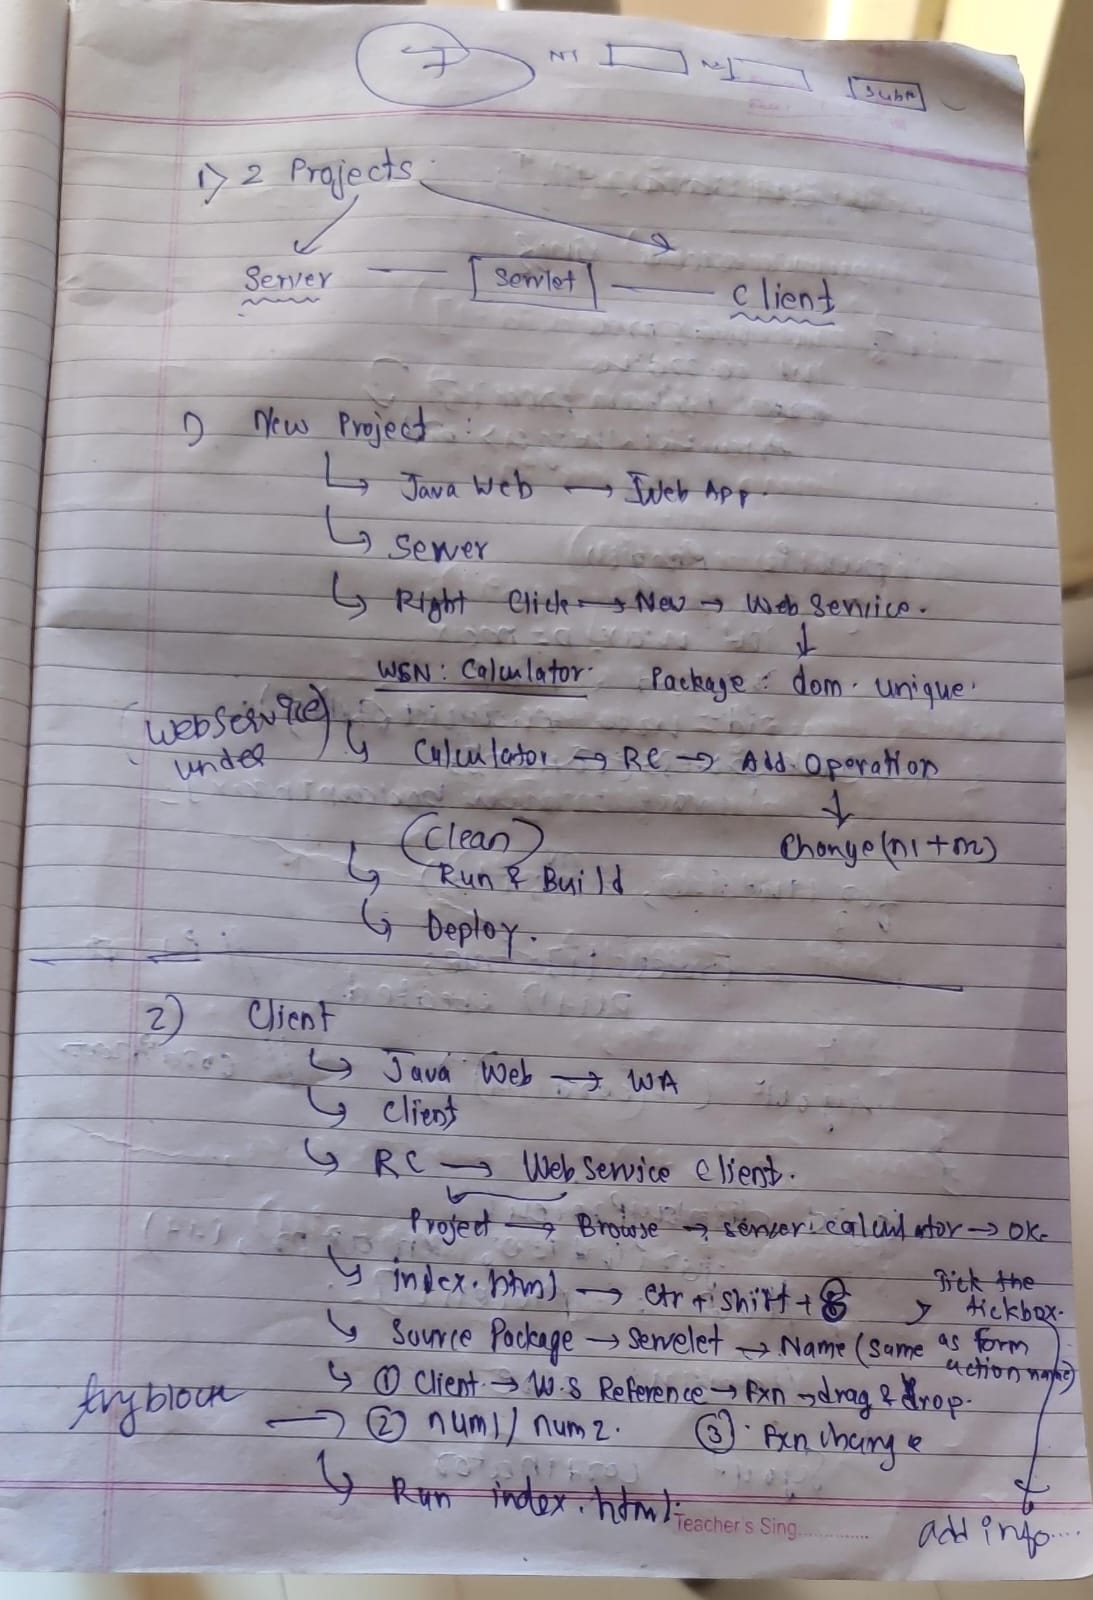 N1 N2 Submit
1) 2 Projects
Server Servlet Client
1) New Project :
Java Web → Web App.
Server
Right Click → New → Web Service.
WSN : Calculator. Package : dom. unique.
(Web Service) under Calculator → RC → Add Operation
Change (n1 + n2)
(Clean)
Run & Build
Deploy.
2) Client
Java Web → WA
Client
RC → Web Service Client.
Project → Browse → server. calculator → OK.
index.html → ctr + shift + 8
Tick the tickbox.
Source Package → Servelet → Name (same as form action name)
① Client → W.S Reference → Fxn → drag & drop.
try block → ② num1/ num2. ③ Fxn change
Run index.html.
Teacher's Sing..............
add info....